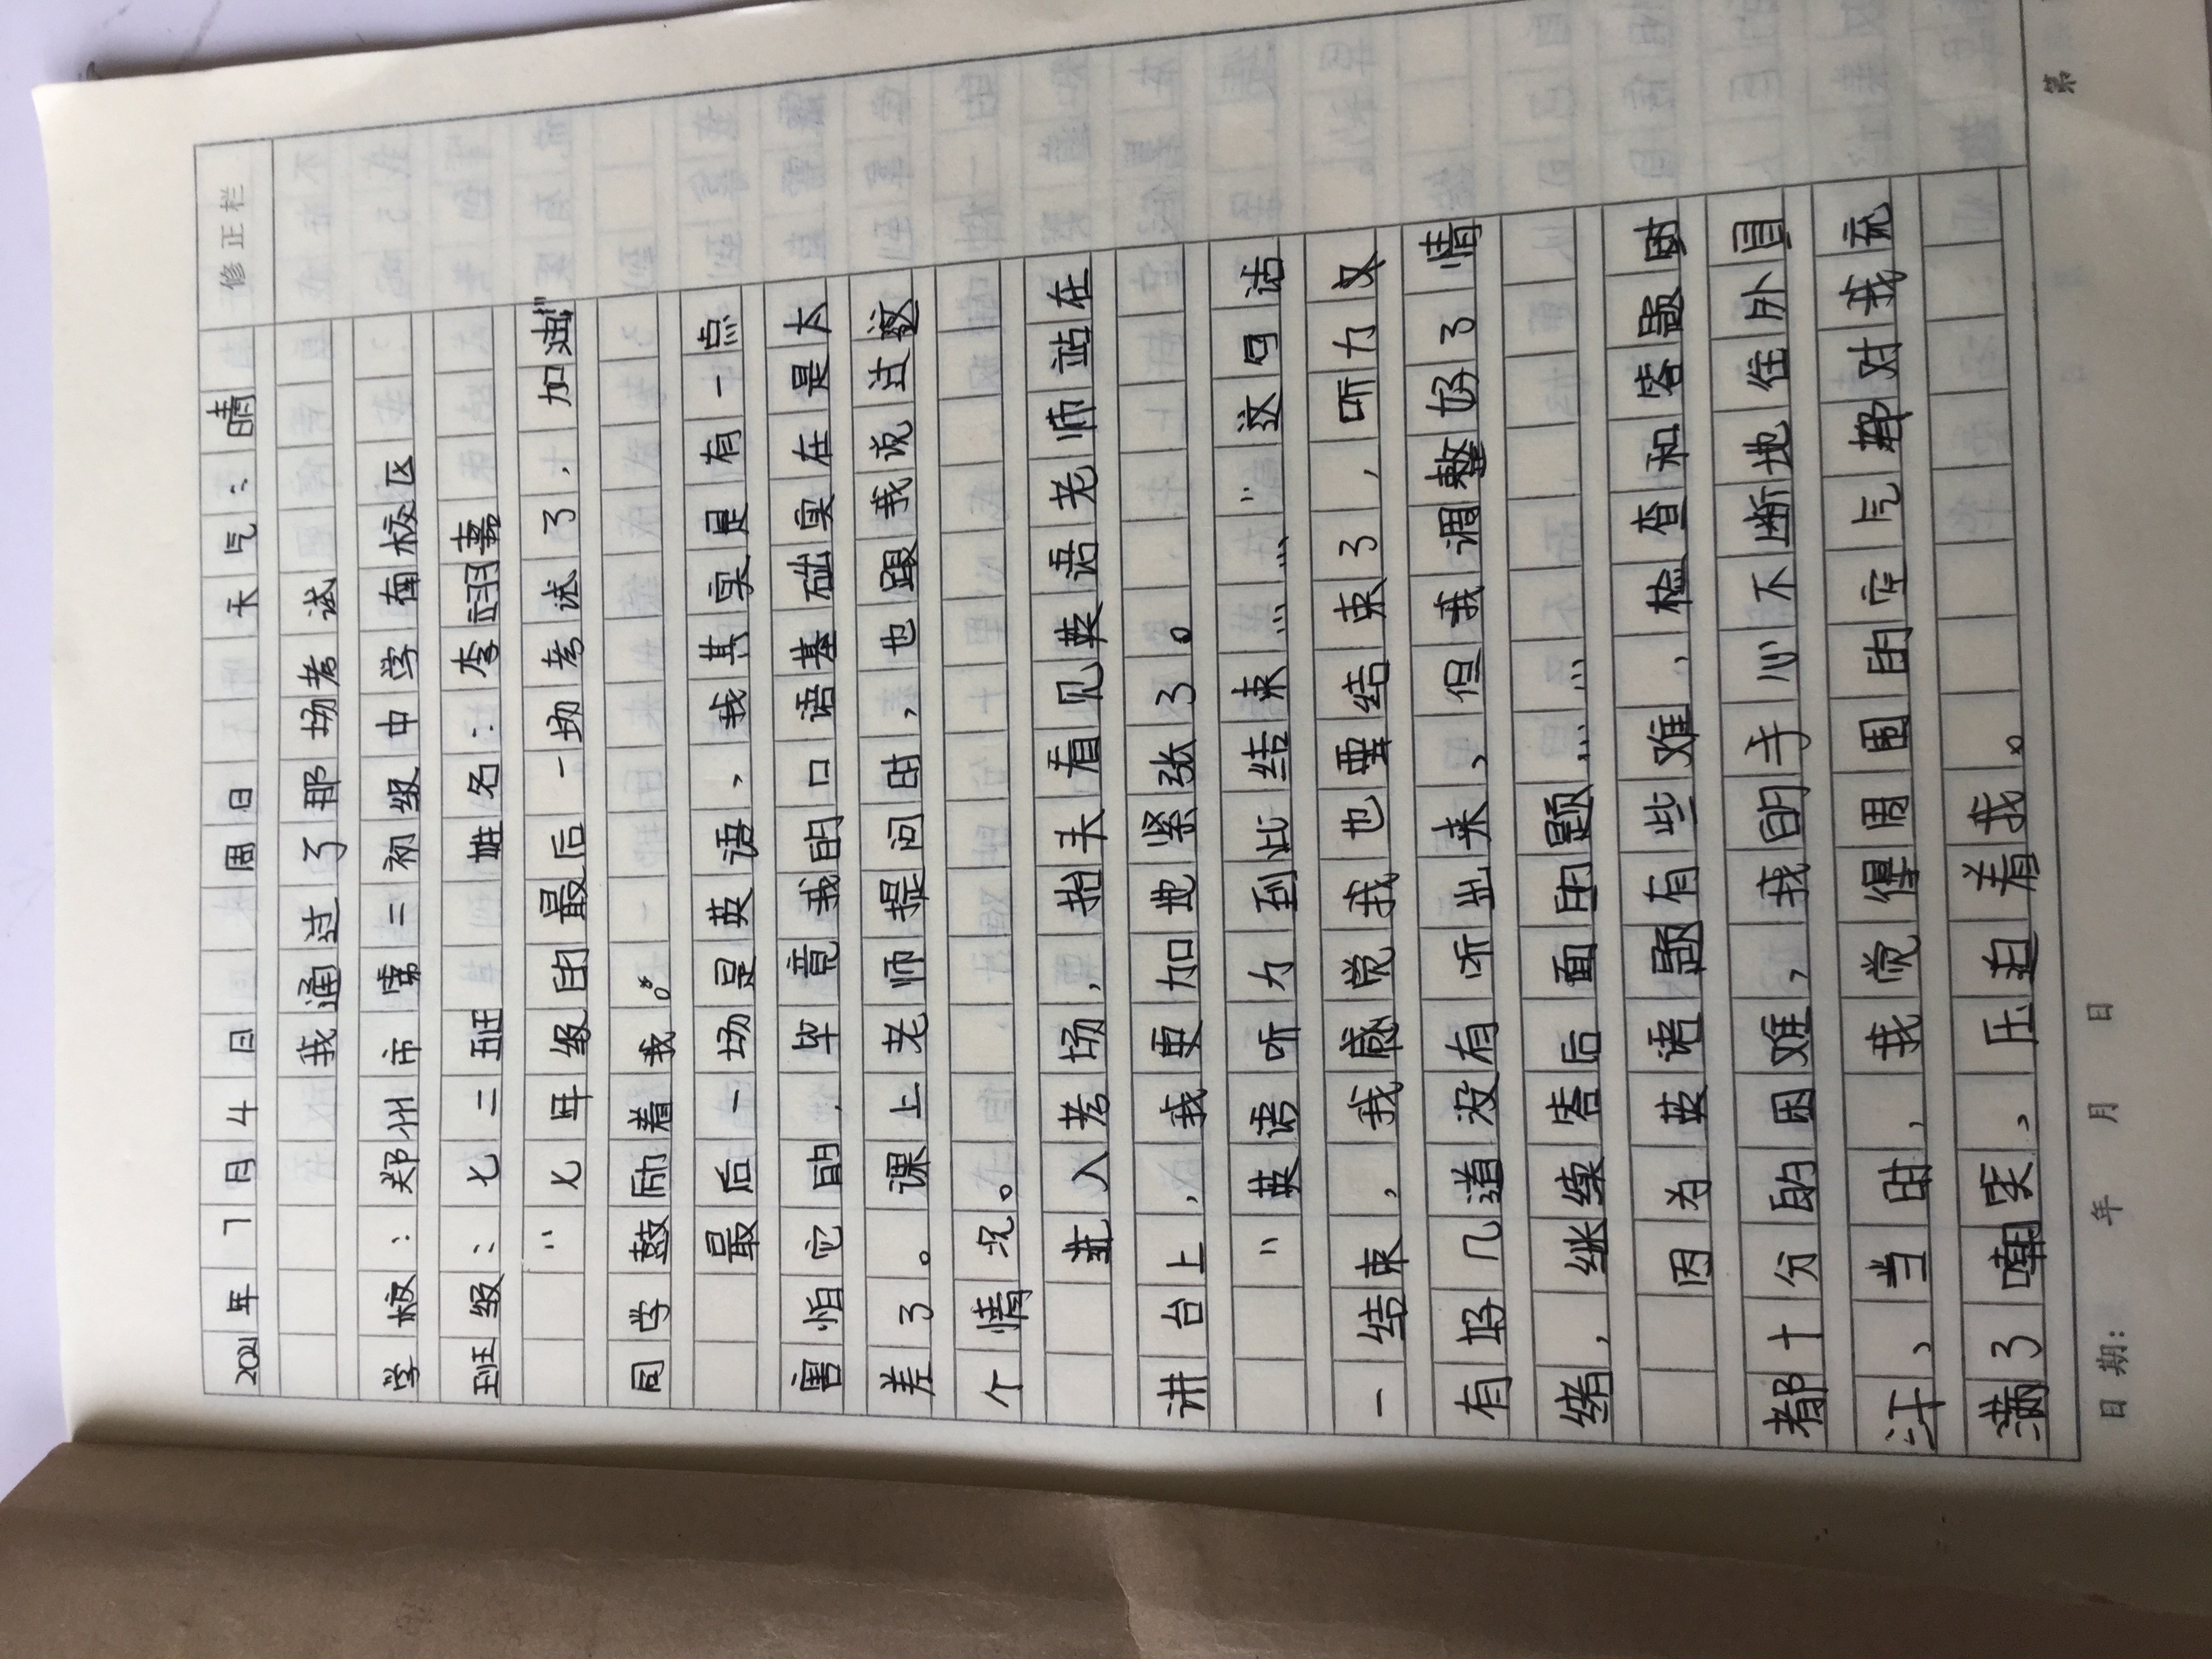 修正栏
2021年7月4日 周日 天气：晴
我通过了那场考试
学校：郑州市第二初级中学南校区
班级：七二班 姓名：李羽嘉
“七年级的最后一场考试了，加油”
同学鼓励着我。
最后一场是英语，我其实是有一点
害怕它的，毕竟我的口语基础实在是太
差了。课上老师提问时，也跟我说过这
个情况。
进入考场，抬头看见英语老师站在
讲台上，我更加地紧张了。
“英语听力到此结束……”这句话
一结束，我感觉我也要结束了，听力又
有好几道没有听出来，但我调整好了情
绪，继续答后面的题……
因为英语题有些难，检查和答题时
都十分的困难，我的手心不断地往外冒
汗，当时，我觉得周围的空气都对我充
满了嘲笑，压迫着我。
日期： 年 月 日
第